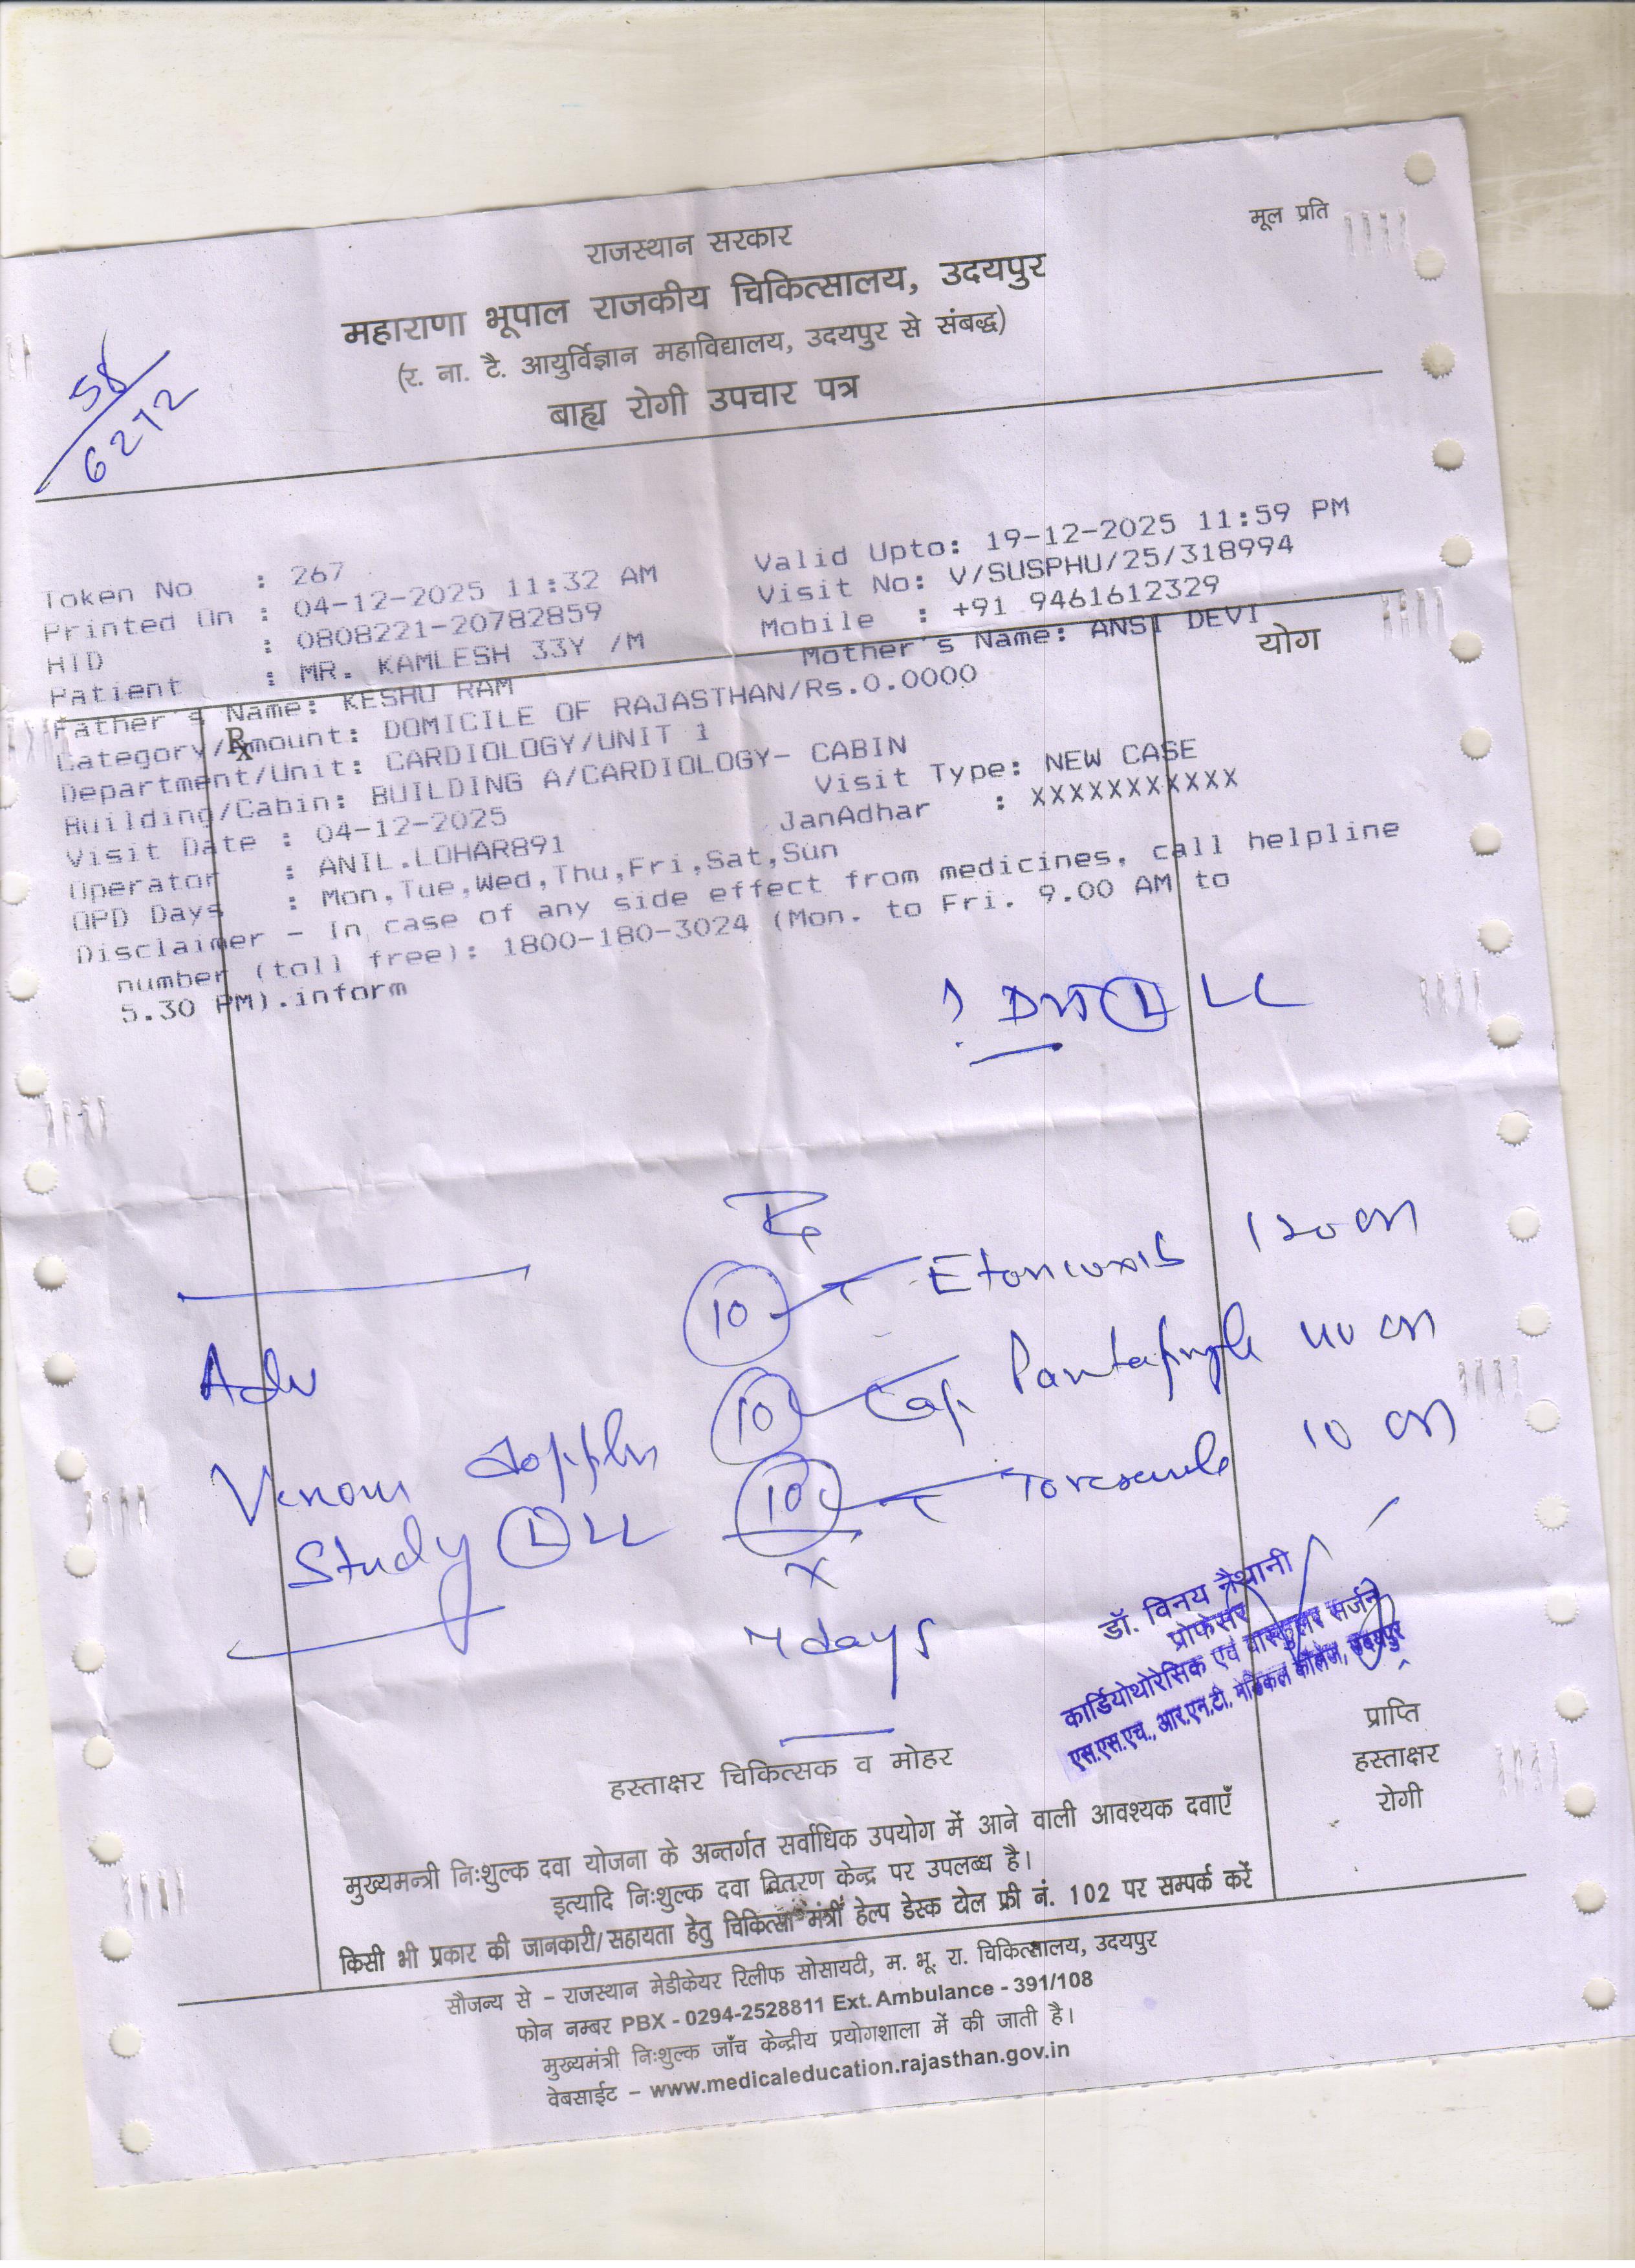 मूल प्रति
राजस्थान सरकार
महाराणा भूपाल राजकीय चिकित्सालय, उदयपुर
(र. ना. टै. आयुर्विज्ञान महाविद्यालय, उदयपुर से संबद्ध)
बाह्य रोगी उपचार पत्र
58
6272
Token No : 267
Valid Upto: 19-12-2025 11:59 PM
Printed On : 04-12-2025 11:32 AM
Visit No: V/SUSPHU/25/318994
HID : 0808221-20782859
Mobile : +91 9461612329
Patient : MR. KAMLESH 33Y /M
Mother's Name: ANSI DEVI
योग
Father's Name: KESHU RAM
Rx
Category/Amount: DOMICILE OF RAJASTHAN/Rs.0.0000
Department/Unit: CARDIOLOGY/UNIT 1
Building/Cabin: BUILDING A/CARDIOLOGY- CABIN
Visit Date : 04-12-2025
Visit Type: NEW CASE
Operator : ANIL.LOHAR891
JanAdhar : XXXXXXXXXXX
OPD Days : Mon,Tue,Wed,Thu,Fri,Sat,Sun
Disclaimer - In case of any side effect from medicines, call helpline
number (toll free): 1800-180-3024 (Mon. to Fri. 9.00 AM to
5.30 PM).inform
? DVT (L) LL
Rx
10 T Etoricoxib 120
10 Cap. Pantaprazole 40
10 T Toresemide 10
x
7 days
Adv
Venous doppler
Study (L) LL
डॉ. विनय नैथानी
प्रोफेसर
कार्डियोथोरेसिक एवं वास्कुलर सर्जन
एस.एस.एच., आर.एन.टी. मेडिकल कॉलेज, उदयपुर
हस्ताक्षर चिकित्सक व मोहर
प्राप्ति
हस्ताक्षर
रोगी
मुख्यमन्त्री निःशुल्क दवा योजना के अन्तर्गत सर्वाधिक उपयोग में आने वाली आवश्यक दवाएँ
इत्यादि निःशुल्क दवा वितरण केन्द्र पर उपलब्ध है।
किसी भी प्रकार की जानकारी/सहायता हेतु चिकित्सा मंत्री हेल्प डेस्क टोल फ्री नं. 102 पर सम्पर्क करें
सौजन्य से – राजस्थान मेडीकेयर रिलीफ सोसायटी, म. भू. रा. चिकित्सालय, उदयपुर
फोन नम्बर PBX - 0294-2528811 Ext. Ambulance - 391/108
मुख्यमंत्री निःशुल्क जाँच केन्द्रीय प्रयोगशाला में की जाती है।
वेबसाईट – www.medicaleducation.rajasthan.gov.in